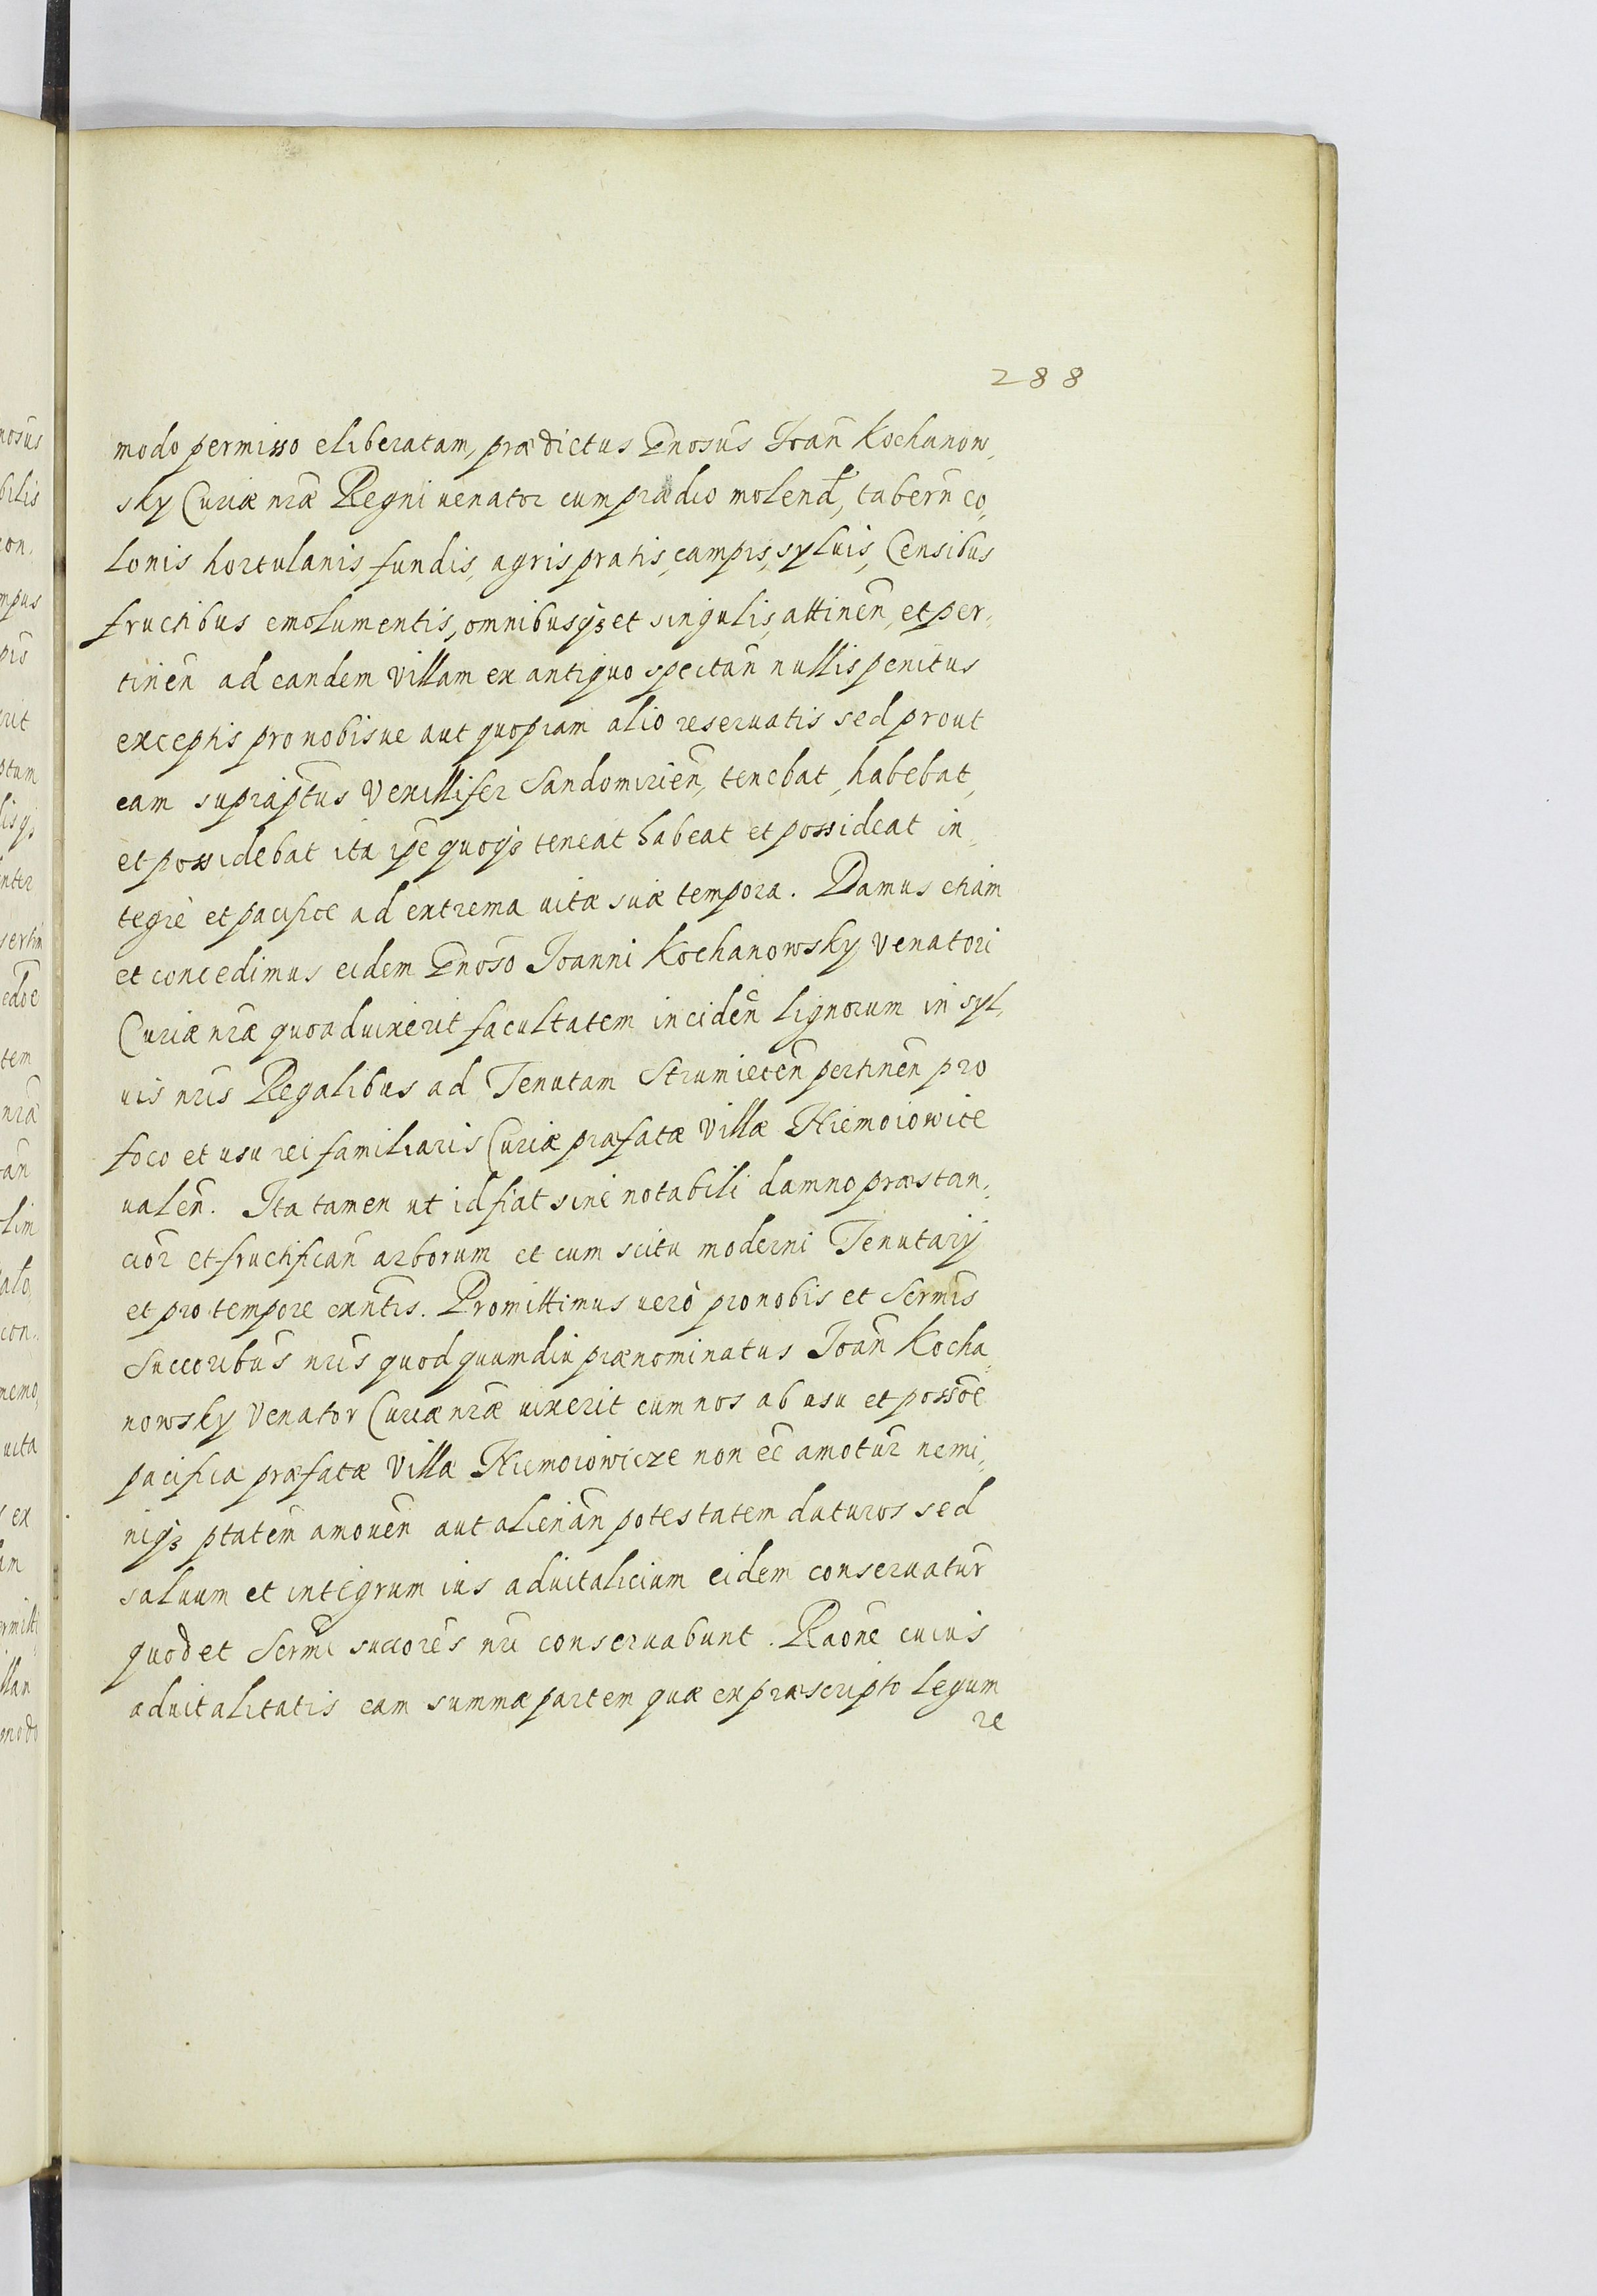 288
modo permisso eliberatam, prædictus Gnosus Ioañ Kochanow,
sky Curiæ nræ Regni venator cum prædio molend, taberñ co,
lonis hortulanis fundis, agris pratis, campis, syluis, Censibus
fructibus emolumentis, omnibusq3 et singulis, attineñ, et per,
tineñ ad eandem Villam ex antiquo spectañ nullis penitus
exceptis pro nobisue aut quopiam alio reseruatis sed prout
eam supraptus Vexillifer Sandomirieñ, tenebat, habebat,
et possidebat ita ipe quoq3 teneat habeat et possideat in,
tegrè et pacifice ad extrema uitæ suæ tempora. Damus etiam
et concedimus eidem Gnoso Ioanni Kochanowsky Venatori
Curiæ nræ quoad uixerit facultatem incideñ lignorum in syl,
uis nris Regalibus ad Tenutam Strumieceñ pertineñ pro
foco et usu rei familiaris Curiæ præfatæ Villæ Niemoiowice
ualeñ. Ita tamen ut id fiat sine notabili damno præstan,
cior et fructificañ arborum et cum scitu moderni Tenutarij
et pro tempore exñtis. Promittimus uerò pro nobis et Sermis
Succoribus nris quod quumdiu prænominatus Ioañ Kocha,
nowsky Venator Curiæ nræ uixerit eum nos ab usu et possoe
pacifica præfatæ Villæ Niemoiowicze non eē amotur nemi,
niq3 ptatem amoueñ aut alienañ potestatem daturos sed
saluum et integrum ius aduitalicium eidem conseruatur
quod et Sermi succores nri conseruabunt. Raone cuius
aduitalitatis eam summæ partem quæ ex præscripto legum
re